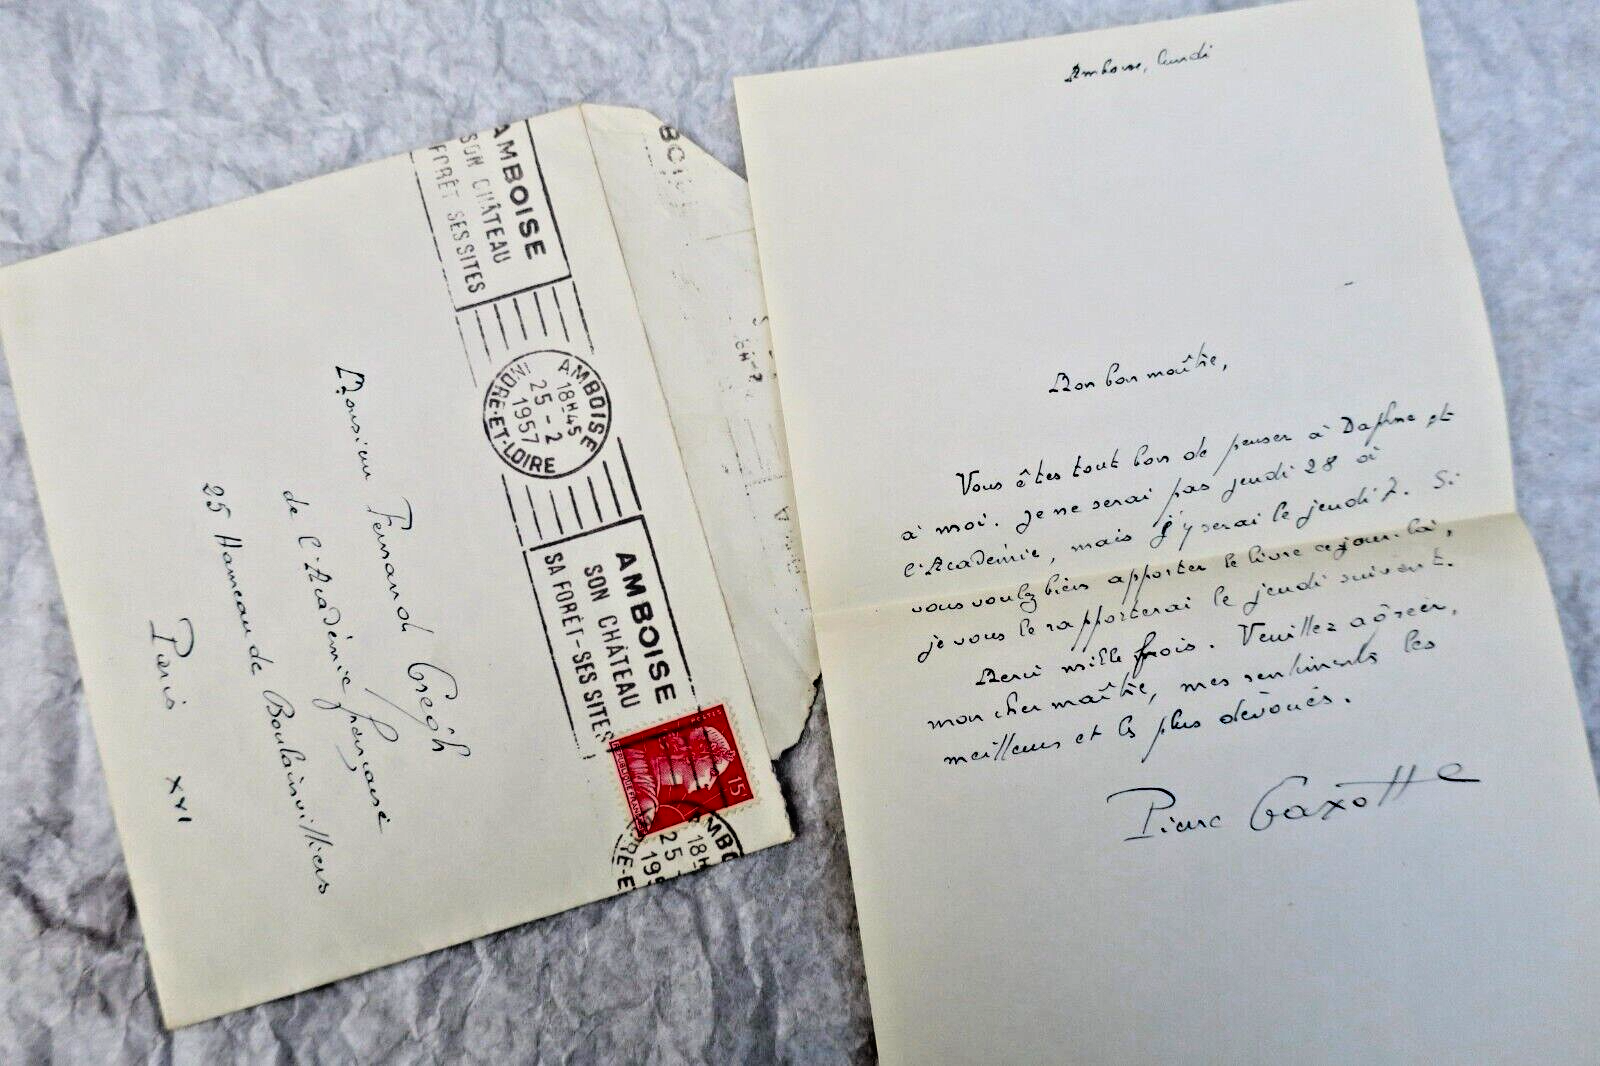 AMBOISE
SON CHÂTEAU
FORÊT SES SITES
AMBOISE
18H45
25-2
1957
INDRE-ET-LOIRE
AMBOISE
SON CHÂTEAU
SA FORÊT-SES SITES
POSTES
15F
REPUBLIQUE FRANCAISE
18H
25
195
Monsieur Fernand Gregh
de l'Académie française
25 Hameau de Boulainvilliers
Paris XVI
Amboise, lundi
Mon bon maître,
Vous êtes tout bon de penser à Daphne et
à moi. Je ne serai pas jeudi 28 à
l'Académie, mais j'y serai le jeudi 7. Si
vous voulez bien apporter le livre ce jour-là,
je vous le rapporterai le jeudi suivant.
Merci mille fois. Veuillez agréer,
mon cher maître, mes sentiments les
meilleurs et les plus dévoués.
Pierre Gaxotte